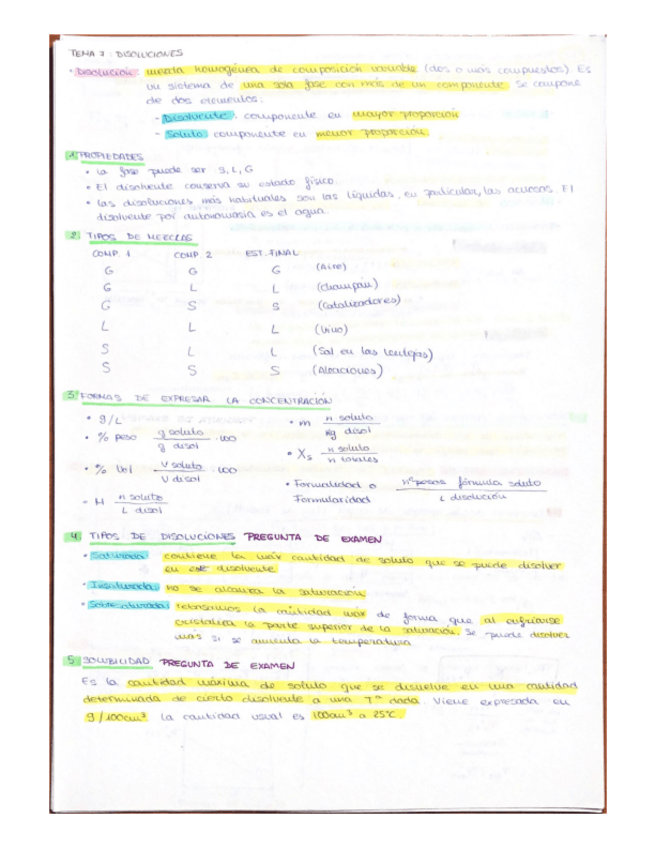 TEMA 7: DISOLUCIONES
• Disolución: mezcla homogénea de composición variable (dos o más compuestos). Es
un sistema de una sola fase con más de un componente. Se compone
de dos elementos:
- Disolvente: componente en mayor proporción
- Soluto: componente en menor proporción.
1. PROPIEDADES
• La fase puede ser S, L, G
• El disolvente conserva su estado físico.
• Las disoluciones más habituales son las líquidas, en particular, las acuosas. El
disolvente por autonomasia es el agua.
2. TIPOS DE MEZCLAS
COMP. 1 COMP. 2 EST. FINAL
G G G (Aire)
G L L (champán)
G S S (Catalizadores)
L L L (Vino)
S L L (Sal en las lentejas)
S S S (Aleaciones)
3. FORMAS DE EXPRESAR LA CONCENTRACIÓN
• g/L
• % peso g soluto / g disol · 100
• % Vol V soluto / V disol · 100
- M n soluto / L disol
• m n soluto / Kg disol
• Xs n soluto / n totales
• Formalidad o nº pesos fórmula soluto / L disolución
Formularidad
4. TIPOS DE DISOLUCIONES PREGUNTA DE EXAMEN
• Saturada: contiene la máx cantidad de soluto que se puede disolver
en ese disolvente
• Insaturada: no se alcanza la saturación
• Sobresaturada: retomamos la cantidad máx de forma que al enfriarse
cristaliza la parte superior de la saturación. Se puede disolver
más si se aumenta la temperatura
5. SOLUBILIDAD PREGUNTA DE EXAMEN
Es la cantidad máxima de soluto que se disuelve en una cantidad
determinada de cierto disolvente a una Tª dada. Viene expresada en
g/100cm³. La cantidad usual es 100cm³ a 25ºC.